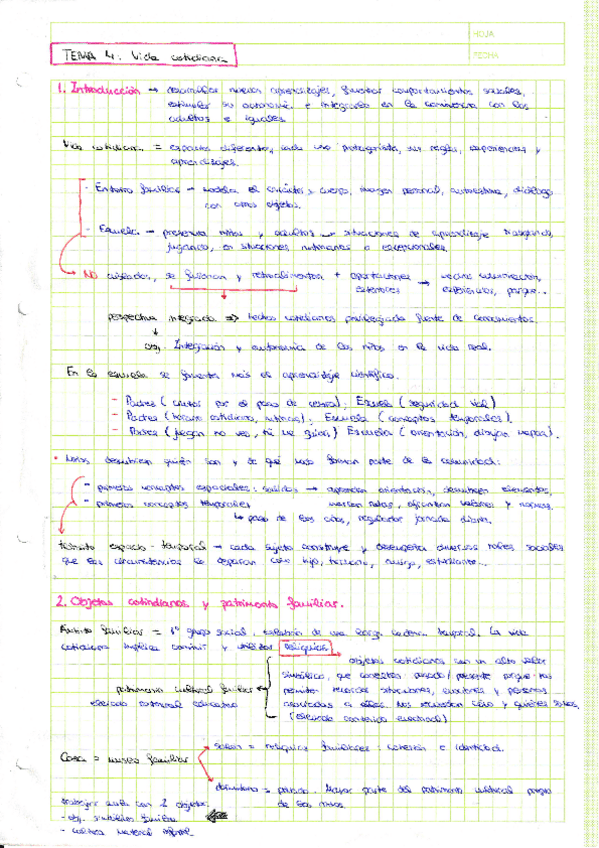 HOJA
FECHA
TEMA 4: Vida cotidiana
1. Introducción → desarrollar nuevos aprendizajes, fomentar comportamientos sociales,
estimular su autonomía e integrarlo en la convivencia con los
adultos e iguales.
Vida cotidiana = espacios diferentes, cada uno protagonista, sus reglas, experiencias y
aprendizajes.
- Entorno familiar → modela el carácter y cuerpo, imagen personal, autoestima, diálogo
con otros objetos.
- Escuela → presenta niños y adultos → situaciones de aprendizaje
jugando, en situaciones rutinarias o excepcionales.
NO aislados, se fusionan y retroalimentan + aportaciones
exteriores
perspectiva integrada => hechos cotidianos privilegiada fuente de conocimientos.
obj. Integración y autonomía de los niños en la vida real.
En la escuela se fomenta más el aprendizaje científico.
- Padres (cruzar por el paso de cebra); Escuela (seguridad vial)
- Padres (horario cotidiano, rutinas); Escuela (conceptos temporales).
- Padres (juegan no veo, tú me guías) Escuela (orientación, dibujan mapas).
descubren quién son y de qué modo forman parte de la comunidad:
- primeros conceptos espaciales: salidas → aprenden orientación, describen elementos,
- primeros conceptos temporales
marcan rutas, valores y normas.
↳ paso de los días, regulador jornada diaria.
espacio-temporal → cada sujeto construye y desempeña diversos roles sociales
que las circunstancias le deparan como hijo, hermano, amigo, estudiante...
2. Objetos cotidianos y patrimonio familiar.
Ámbito familiar = 1º grupo social, eslabón de una larga cadena temporal. La vida
cotidiana implica convivir y utilizar reliquias
objetos cotidianos con un alto valor
simbólico, que conectan pasado/presente porque nos
permiten recordar situaciones, y personas
asociadas a ellos. Nos recuerdan cómo y quiénes somos.
(elevado contenido emocional)
patrimonio cultural familiar
elevado potencial educativo
Casa = museo familiar
salón = reliquias familiares: cohesión e identidad.
dormitorio = privado. Mayor parte del patrimonio cultural propio
de los niños.
trabajar aula con 2 objetos:
- obj. simbólicos familia
- cultura material infantil